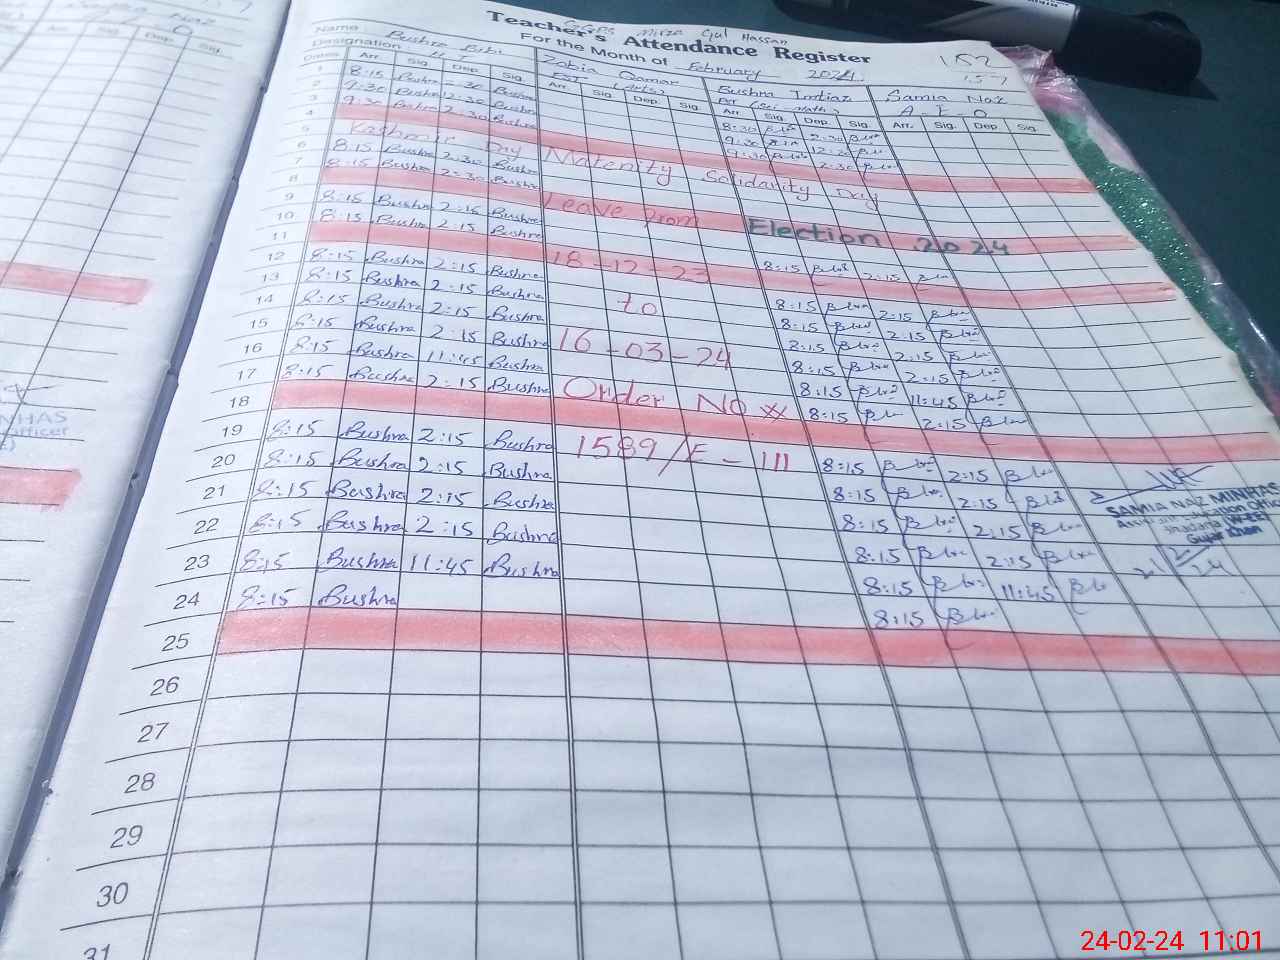 Teacher's Attendance Register
GGPS Mirza Gul Hassan
For the Month of February 2024
152
157
Name Bushra Bibi Zobia Qamar Bushra Imtiaz Samia Naz
Designation EST (Arts) (Sci-Math) A-E-O
Dates Arr. Sig. Dep. Sig. Arr. Sig. Dep. Sig. Arr. Sig. Dep. Sig. Arr. Sig. Dep. Sig.
1 8:15 Bushra 2:30 Bushra 8:30 2:30
2 9:30 Bushra 12:30 Bushra 9:30 12:30
3 9:30 Bushra 2:30 Bushra 9:30 2:30
4
5 Kashmir Day Solidarity Day
6 8:15 Bushra 2:30 Bushra Maternity
7 8:15 Bushra 2:30 Bushra
8 Election 2024
9 8:15 Bushra 2:15 Bushra Leave from
10 8:15 Bushra 2:15 Bushra 8:15 2:15
11
12 8:15 Bushra 2:15 Bushra 18-12-23 8:15 2:15
13 8:15 Bushra 2:15 Bushra to 8:15 2:15
14 8:15 Bushra 2:15 Bushra 8:15 2:15
15 8:15 Bushra 2:15 Bushra 16-03-24 8:15 2:15
16 8:15 Bushra 11:45 Bushra 8:15 11:45
17 8:15 Bushra 2:15 Bushra Order No 8:15 2:15
18
19 8:15 Bushra 2:15 Bushra 1589/E-III 8:15 2:15
20 8:15 Bushra 2:15 Bushra 8:15 2:15
21 8:15 Bushra 2:15 Bushra 8:15 2:15
22 8:15 Bushra 2:15 Bushra 8:15 2:15
23 8:15 Bushra 11:45 Bushra 8:15 11:45
24 8:15 Bushra 8:15
25
26
27
28
29
30
31
SAMIA NAZ MINHAS
Assistant Education Officer
Gujar Khan
NHAS
officer
24-02-24 11:01